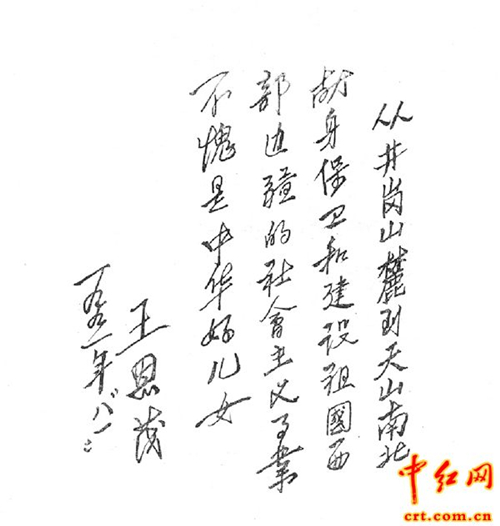 从井岗山麓到天山南北
献身保卫和建设祖國西
部边疆的社會主义事業
不愧是中华好儿女
王恩茂
一九九一年八·一
中红网
crt.com.cn